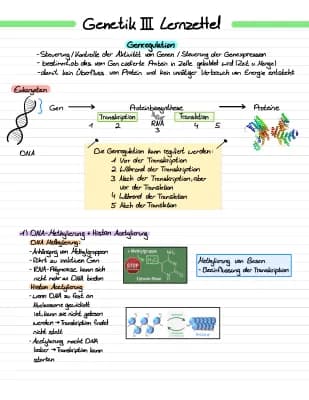 Genetik III Lernzettel
Genregulation
- Steuerung / Kontrolle der Aktivität von Genen / Steuerung der Genexpression
- bestimmt, ob das vom Gen codierte Protein in Zelle gebildet wird
- damit kein Überfluss von Protein und kein unnötiger Verbrauch von Energie entsteht
Eukaryoten
Gen → Proteinbiosynthese → Proteine
Transkription RNA Translation
1 2 3 4 5
DNA
Die Genregulation kann reguliert werden:
1 Vor der Transkription
2 Während der Transkription
3 Nach der Transkription, aber
vor der Translation
4 Während der Translation
5 Nach der Translation
1) DNA-Methylierung + Histon Acetylierung
DNA Methylierung:
- Anhängen von Methylgruppen
- führt zu inaktiven Gen
- RNA-Polymerase kann sich
nicht mehr an DNA binden
Histon Acetylierung
- wenn DNA zu fest an
Nucleosome gewickelt
ist, kann sie nicht gelesen
werden → Transkription findet
nicht statt
- Acetylierung macht DNA
locker → Transkription kann
starten
+ Methylgruppe
STOP
NH₂
Methylierung von Basen
- Beeinflussung der Transkription